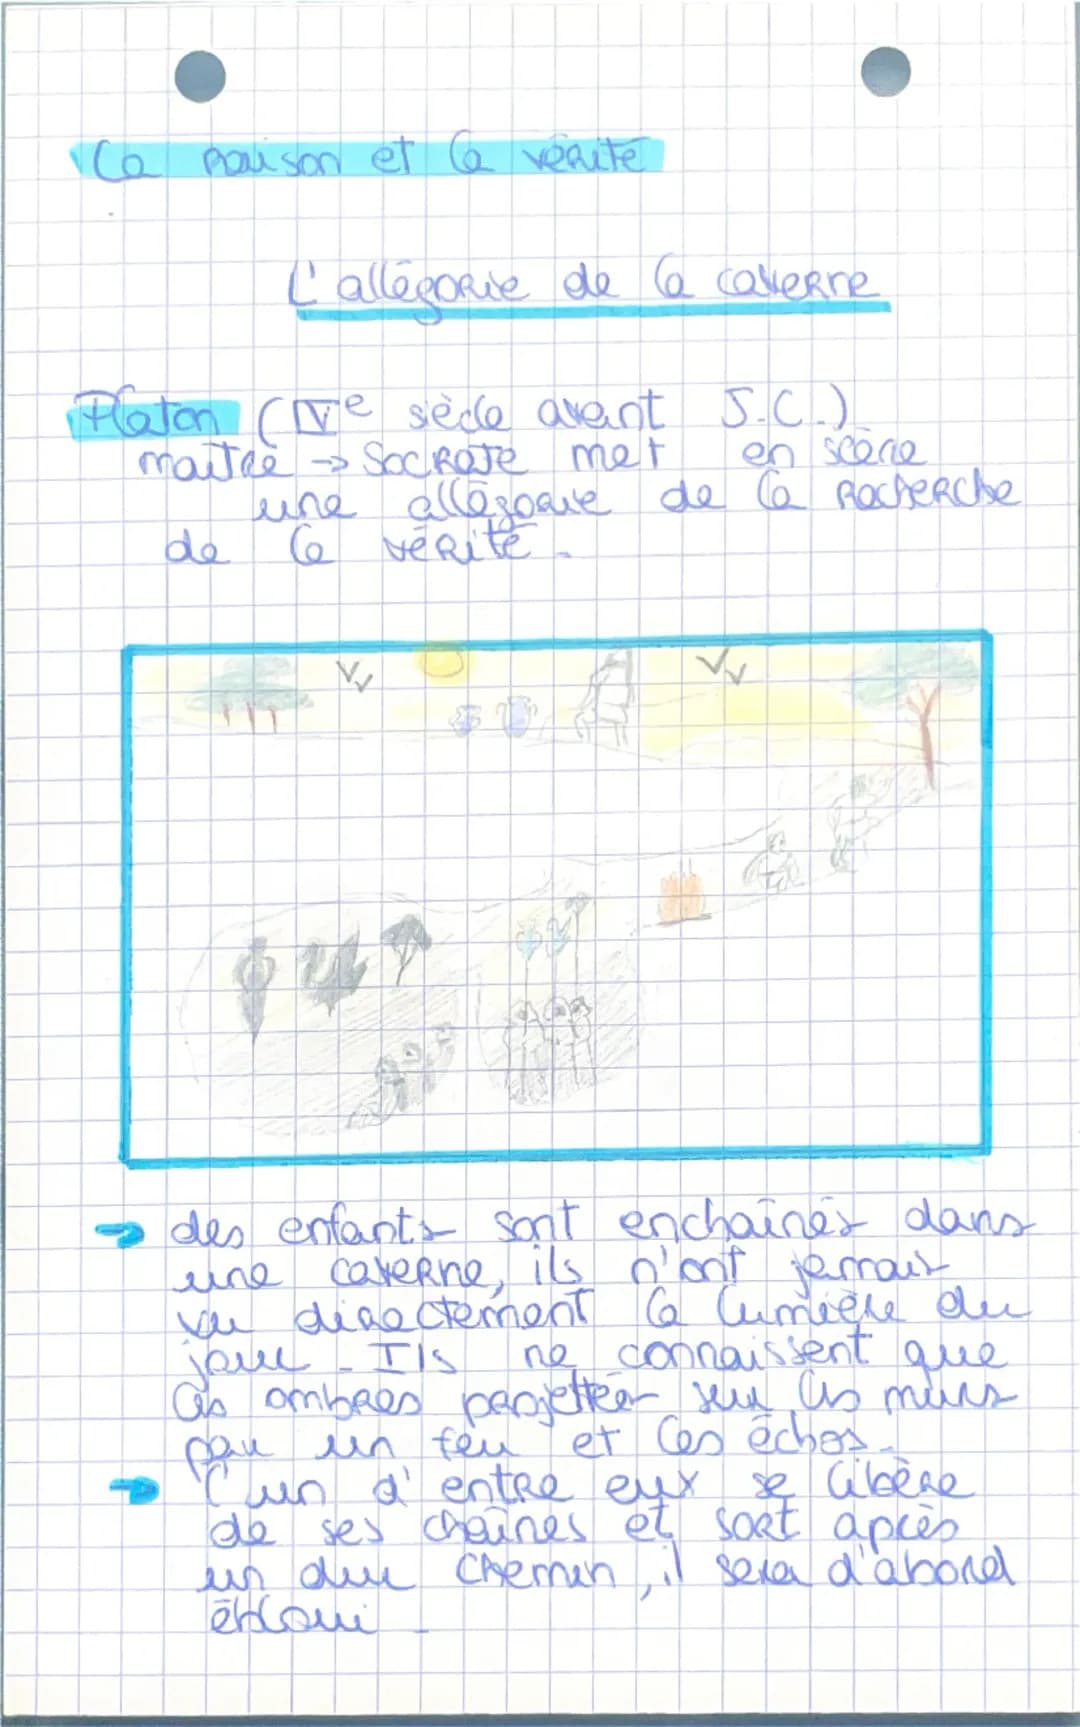 La raison et la vérité
L'allégorie de la caverne
Platon (IVe sècle avant J.C.)
maître → SOCRATE met en scène
une allégorie de la recherche
de la vérité.
→ des enfants sont enchaînés dans
une caverne, ils n'ont jamais
vu directement la lumière du
jour. Ils ne connaissent que
les ombres projetter sur les murs
par un feu et les échos.
→ L'un d'entre eux se libère
de ses chaînes et sort après
un dur chemin, il sera d'abord
ébloui.